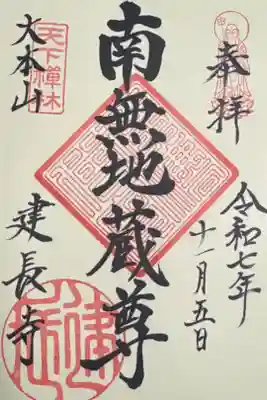 奉拝
令和七年
十一月五日
南無地蔵尊
天下禅林
大本山
建長寺